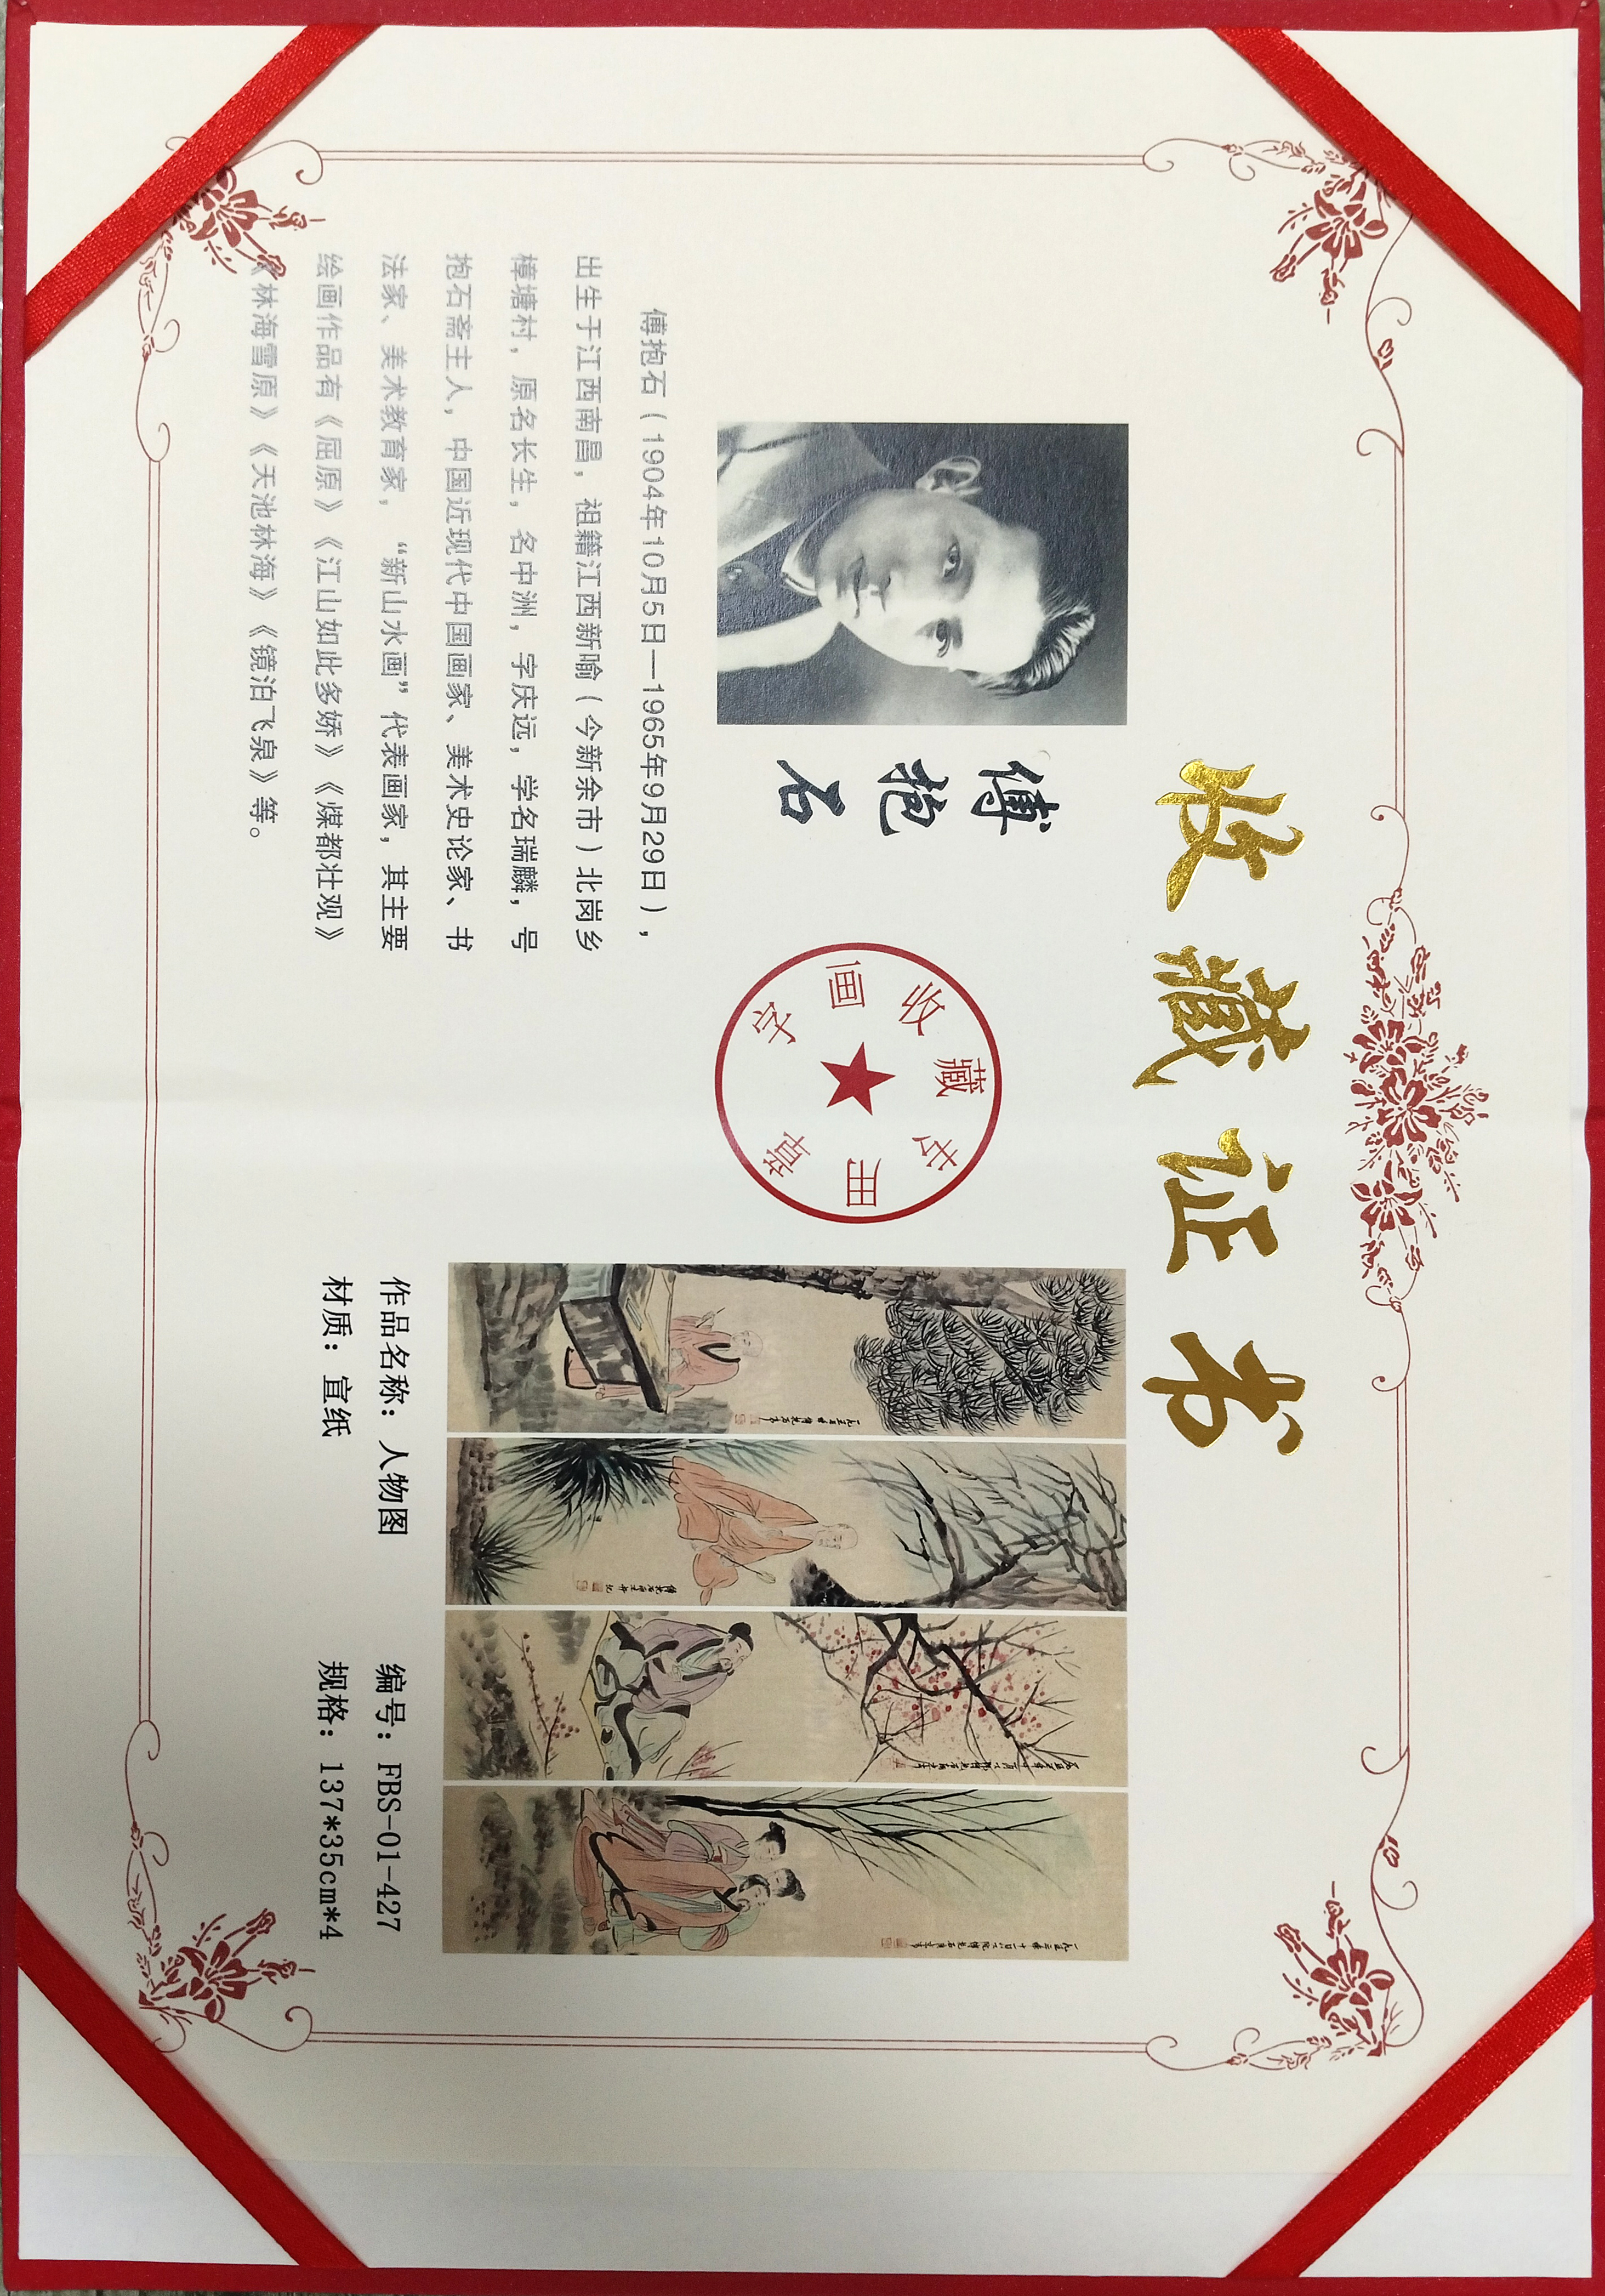 收藏证书
傅抱石
傅抱石（1904年10月5日—1965年9月29日），
出生于江西南昌，祖籍江西新喻（今新余市）北岗乡
樟塘村，原名长生，名中洲，字庆远，学名瑞麟，号
抱石斋主人，中国近现代中国画家、美术史论家、书
法家、美术教育家，“新山水画”代表画家，其主要
绘画作品有《屈原》《江山如此多娇》《煤都壮观》
《林海雪原》《天池林海》《镜泊飞泉》等。
字画收藏专用章
作品名称：人物图
编号：FBS-01-427
材质：宣纸
规格：137*35cm*4